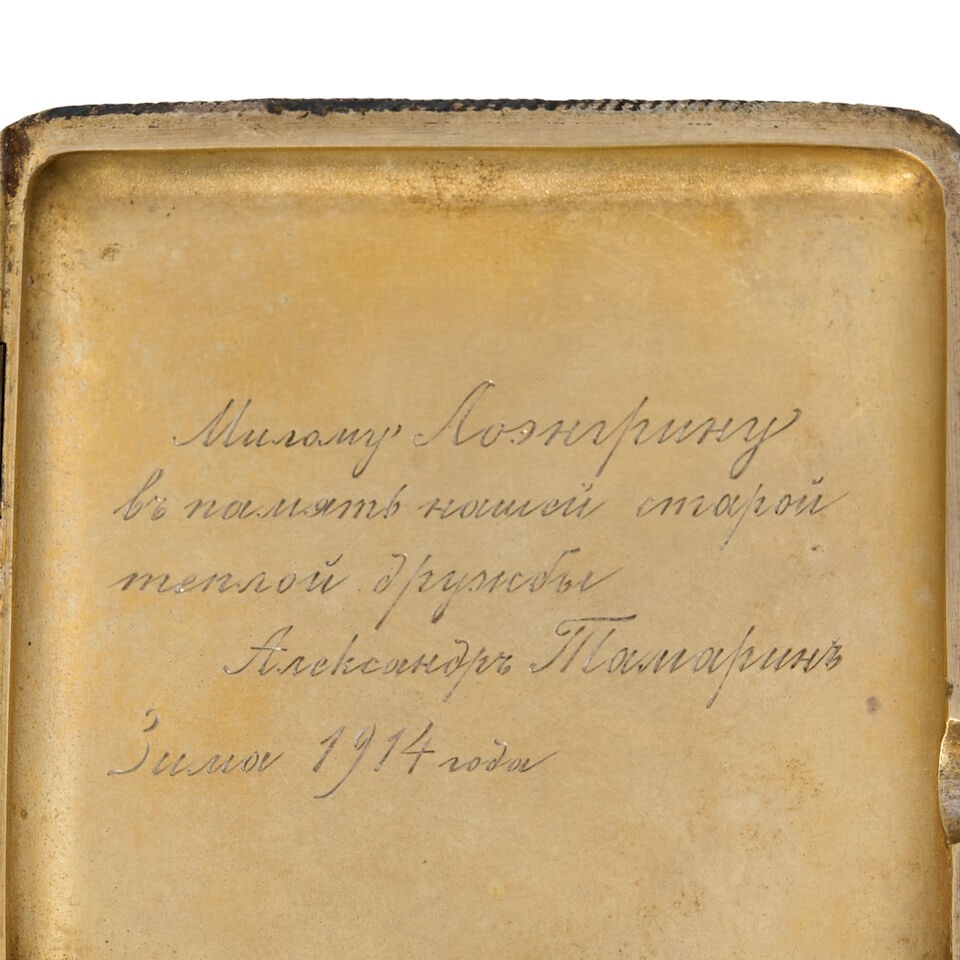 Милому Лоэнгрину
въ память нашей старой
теплой дружбы
Александръ Тамаринъ
Зима 1914 года